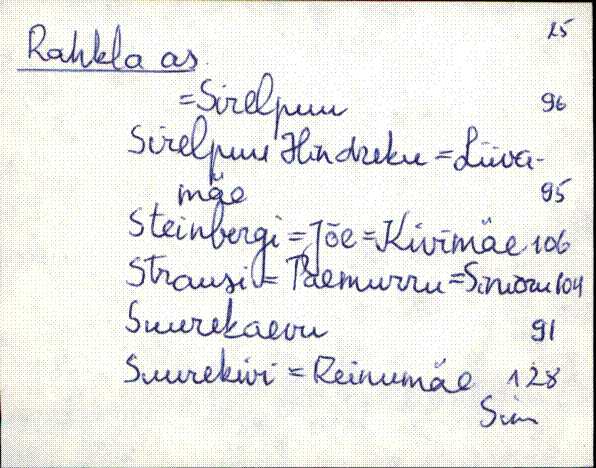 25
Rahkla as
=Sirelpuu 96
Sirelpuu Hindreku = Liiva-
mäe 95
Steinbergi = Jõe = Kivimäe 106
Strausi = Paemurru = Sinioru 104
Suurekaevu 91
Suurekivi = Reinumäe 128
Sim